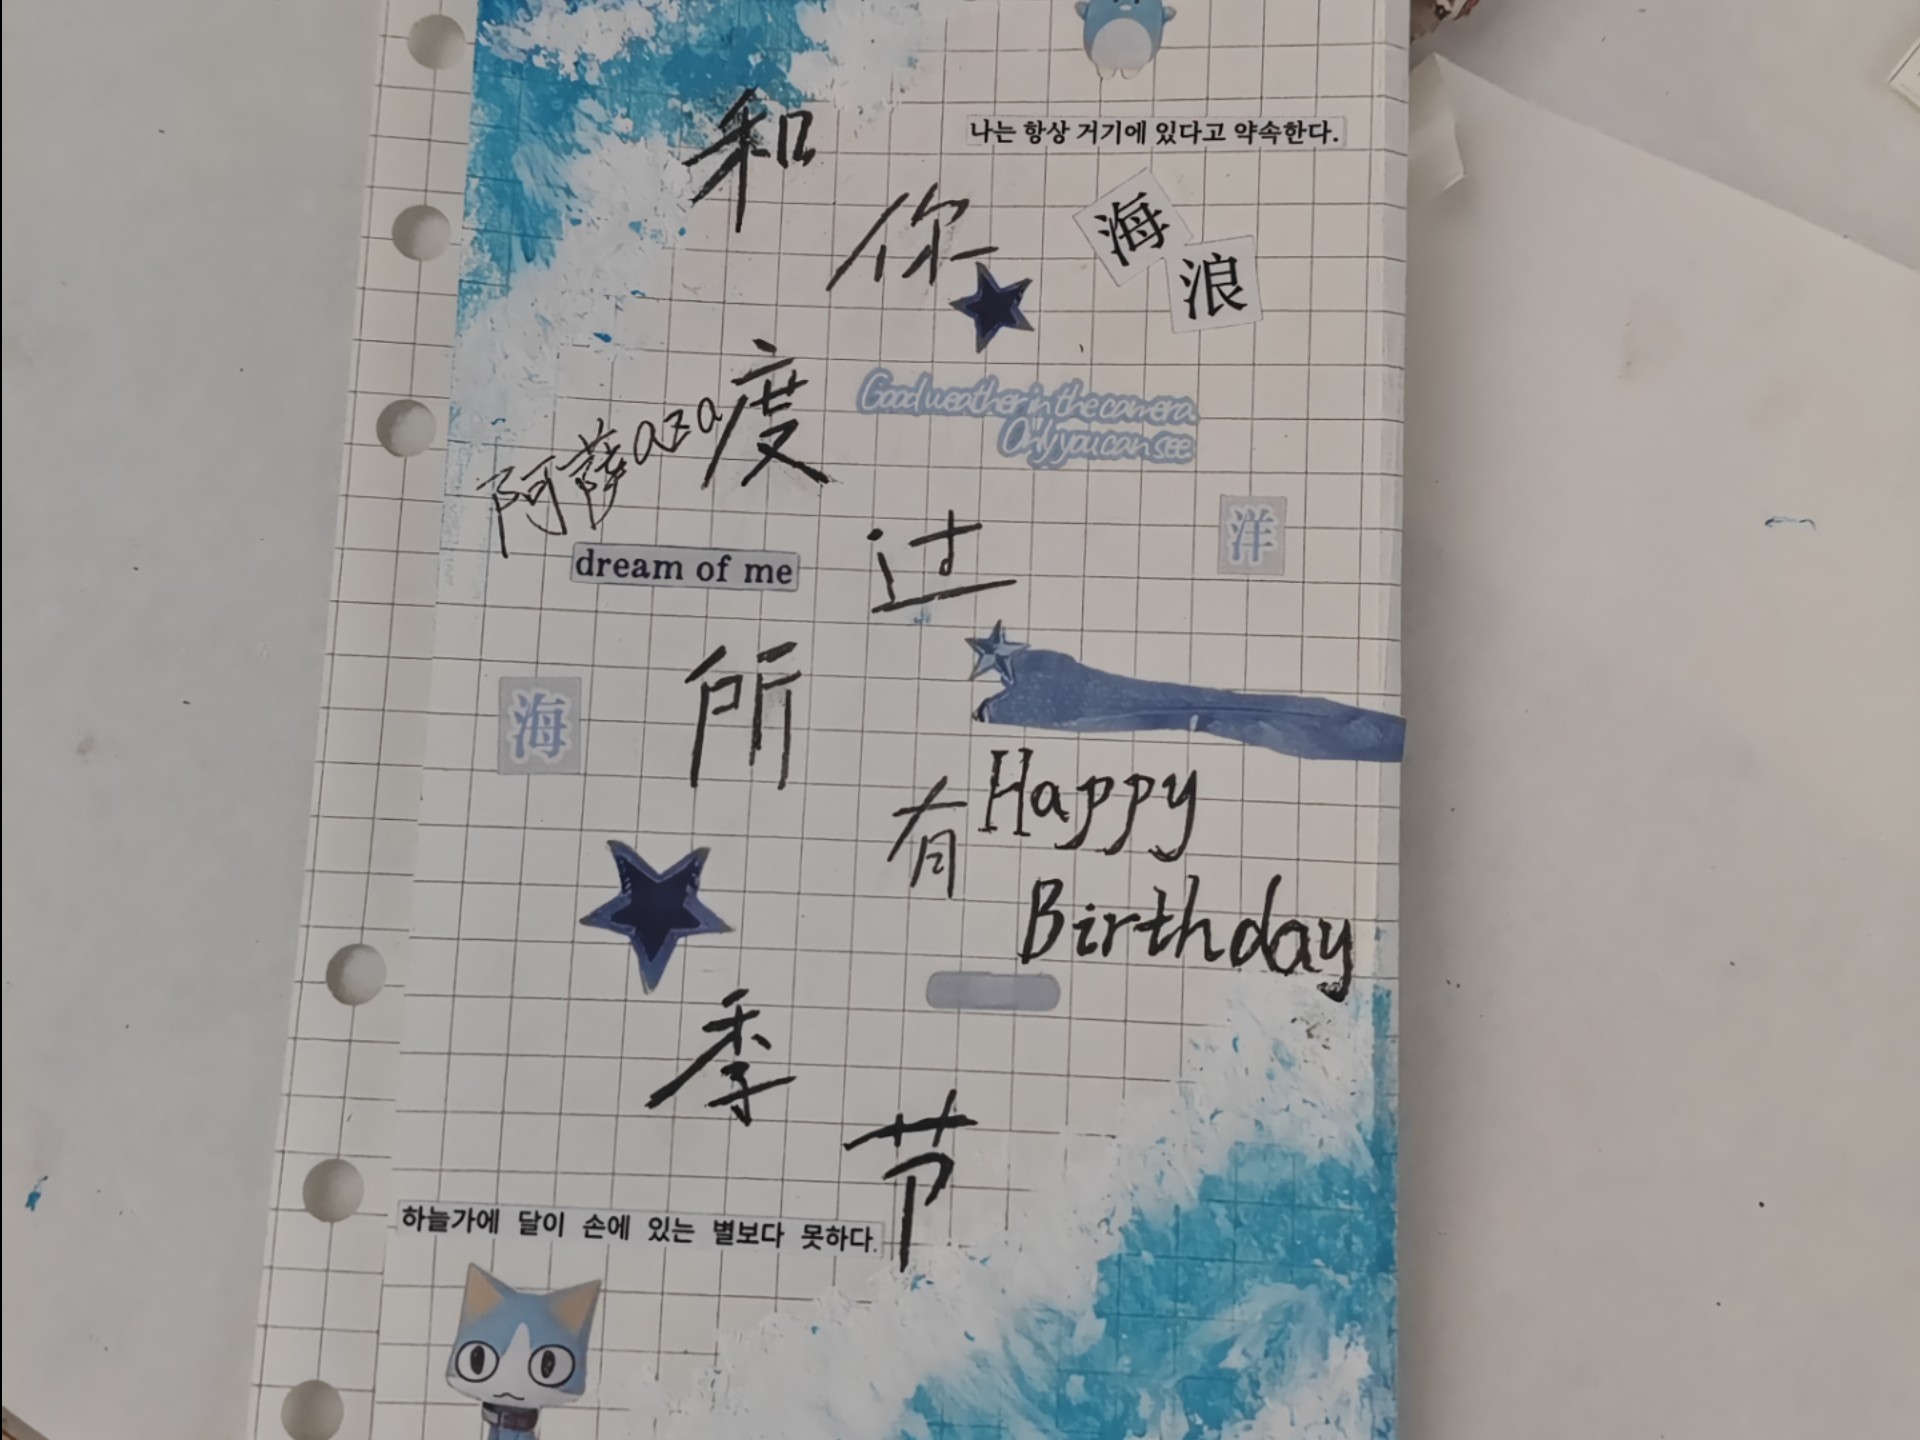 和
나는 항상 거기에 있다고 약속한다.
你
海
浪
度
Good weather in the camera.
Only you can see
阿萨aza
洋
过
dream of me
所
海
有
Happy
Birthday
季
节
하늘가에 달이 손에 있는 별보다 못하다.